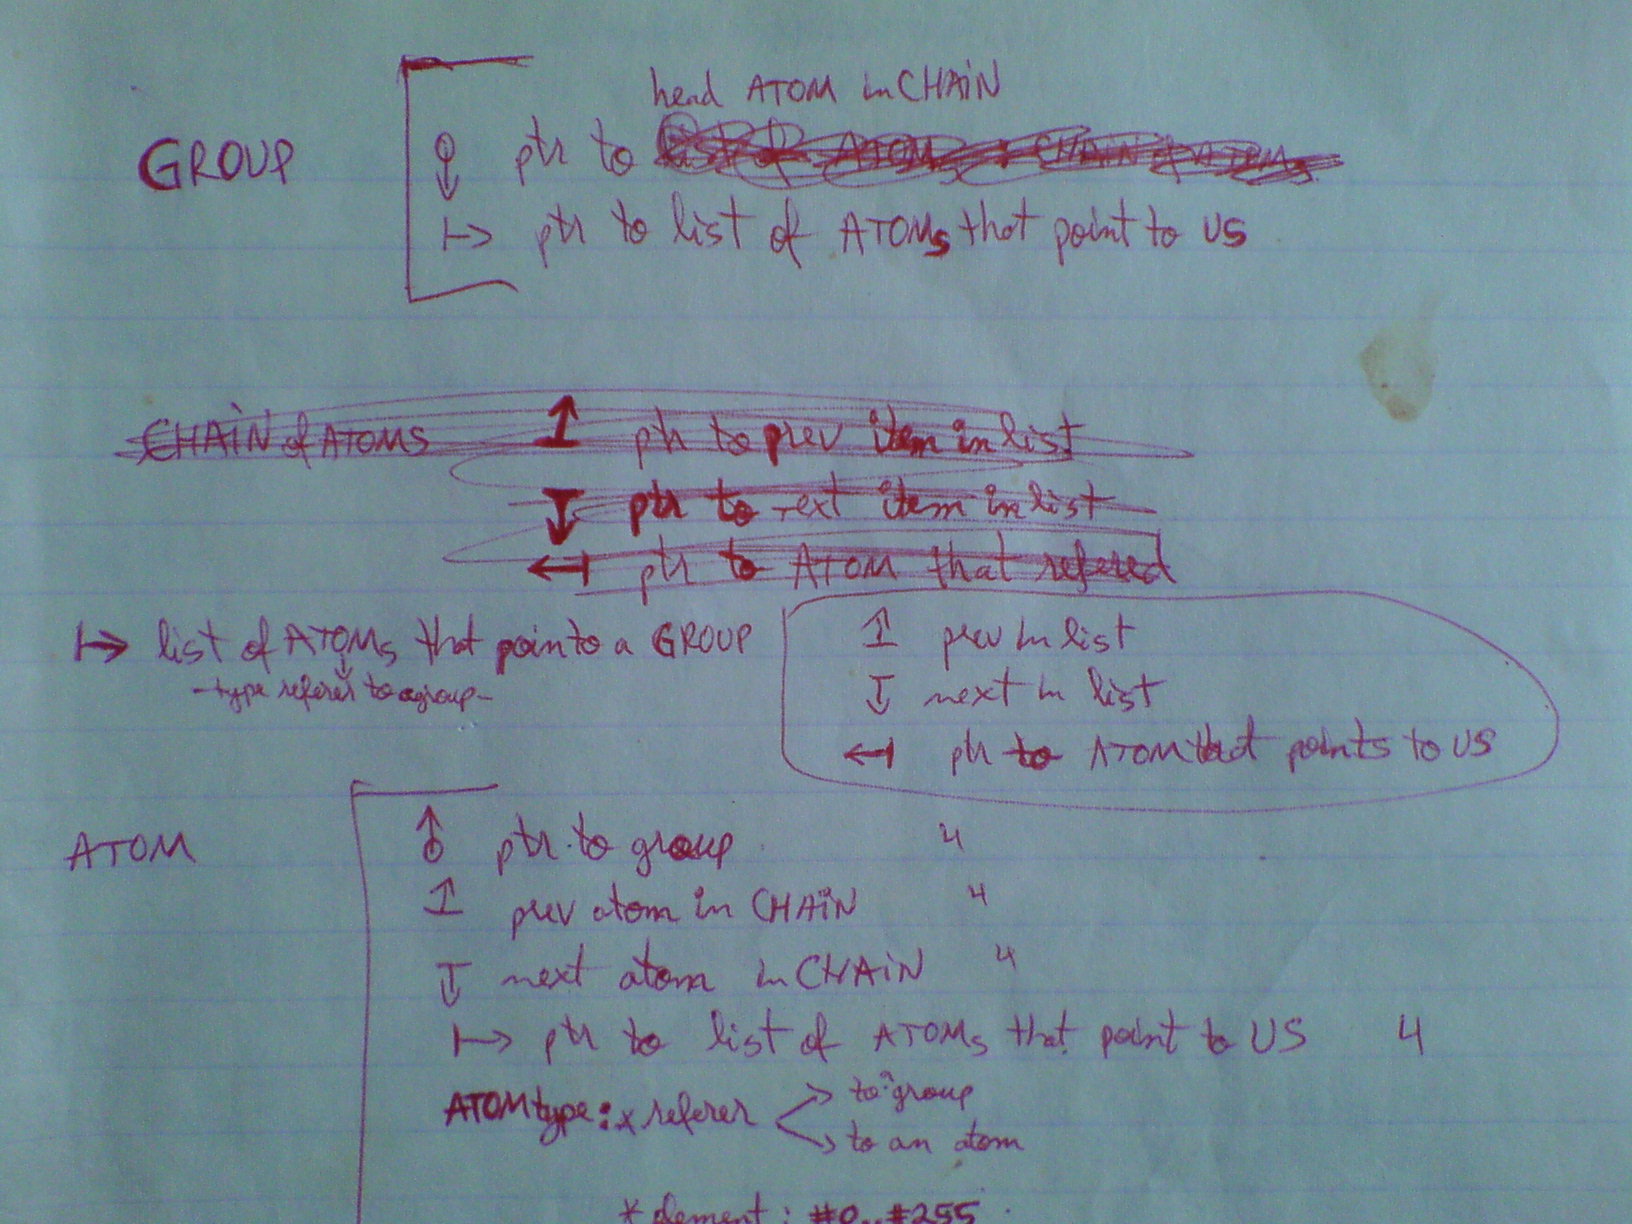 head ATOM in CHAIN
GROUP ptr to
↦ ptr to list of ATOMs that point to US
CHAIN of ATOMS ↥ ptr to prev item in list
↧ ptr to next item in list
↤ ptr to ATOM that refered
↦ list of ATOMs that point to a GROUP
-type referer to a group-
↥ prev in list
↧ next in list
↤ ptr to ATOM that points to US
ATOM ptr to group 4
↥ prev atom in CHAIN 4
↧ next atom in CHAIN 4
↦ ptr to list of ATOMs that point to US 4
ATOM type: * referer → to group
→ to an atom
* element: #0..#255